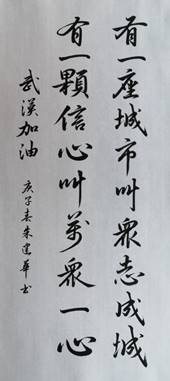 有一座城市叫眾志成城
有一顆信心叫萬眾一心
武漢加油
庚子春朱建華书